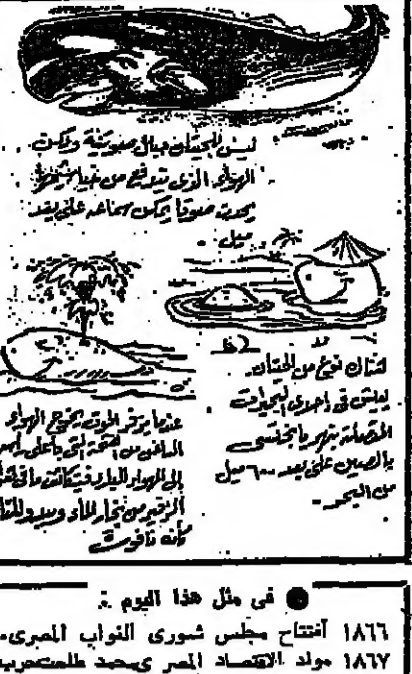 ليس للحيتان حبال صوتية ولكن
الهواء الذى يندفع من خياشيمها
يحدث صوتا يمكن سماعه على بعد
ميل .
هناك نوع من الحيتان
يعيش فى إحدى البحيرات
المتصلة بنهر يانجتسى
بالصين على بعد ٦٠٠ ميل
من البحر -
عندما يزفر الحوت يخرج الهواء
الدافئ من الفتحة التى بأعلى رأسه
إلى الهواء البارد فيتكاثف
الزفير من بخار الماء ويبدو
كأنه نافورة
● فى مثل هذا اليوم :
١٨٦٦ أفتتاح مجلس شورى النواب المصرى.
١٨٦٧ مولد الاقتصاد المصر ى محمد طلعت حرب